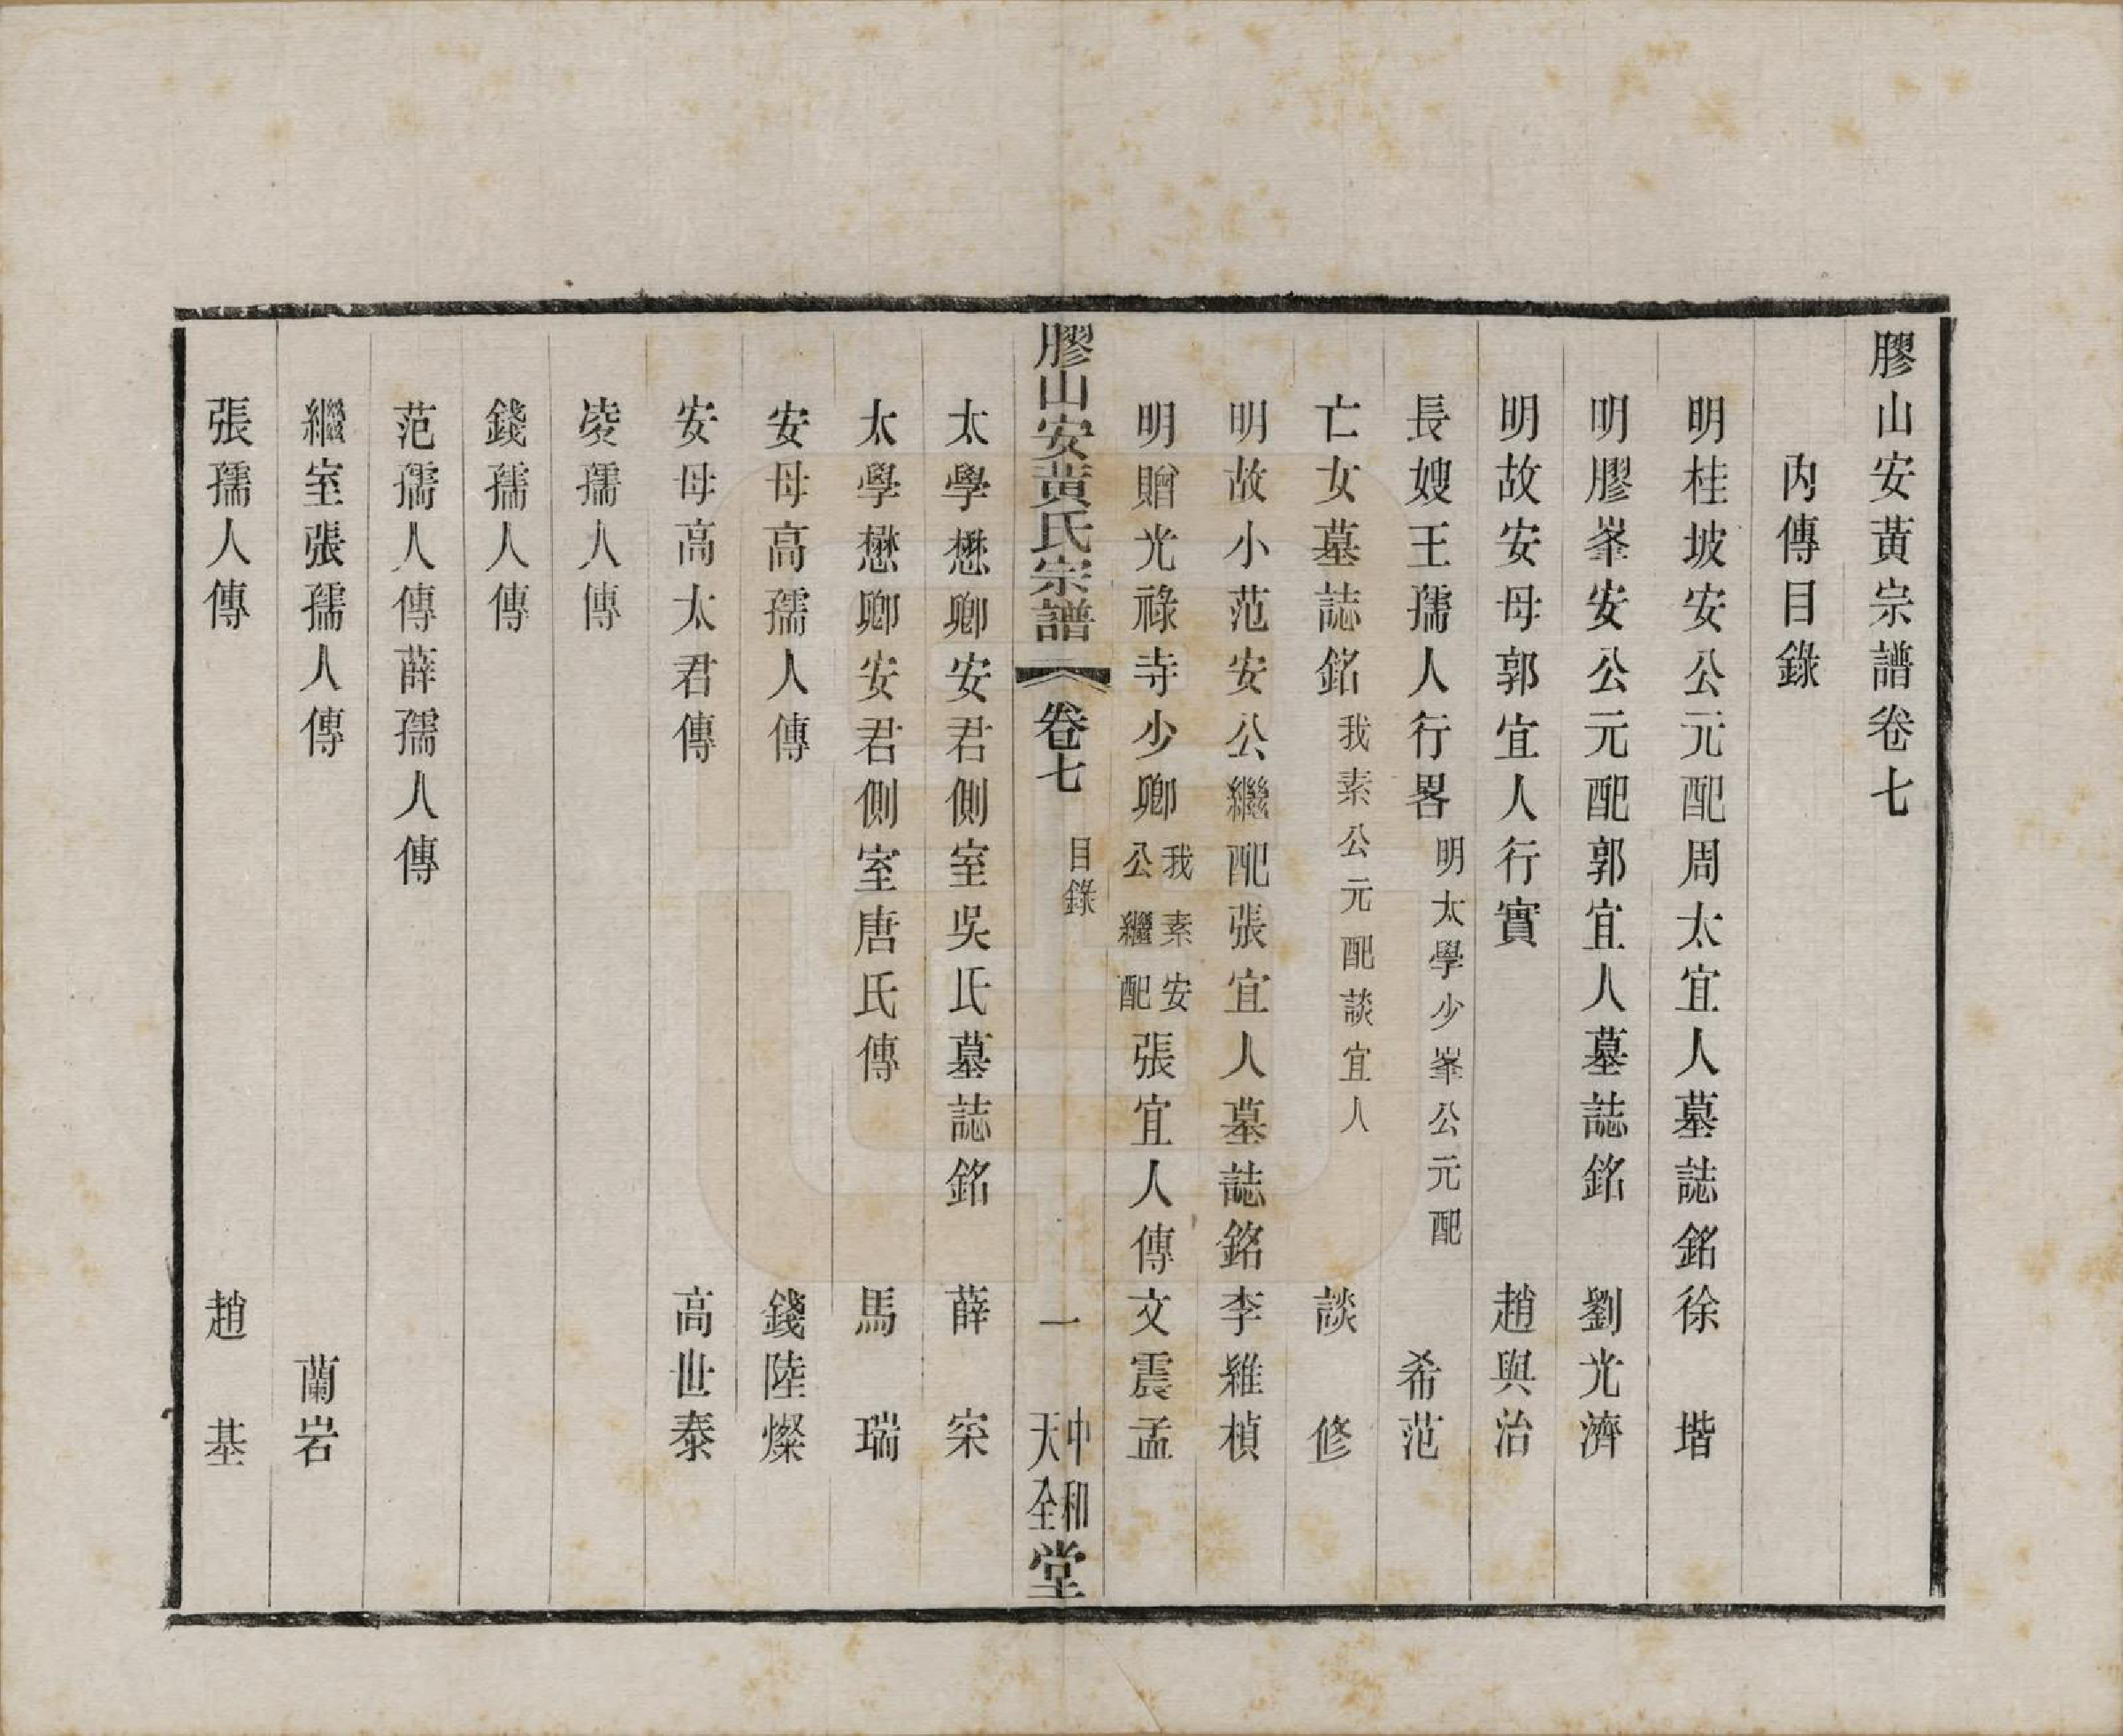 膠山安黃宗譜卷七
內傳目錄
明桂坡安公元配周太宜人墓誌銘徐 堦
明膠峯安公元配郭宜人墓誌銘 劉光濟
明故安母郭宜人行實 趙與治
長嫂王孺人行畧 明太學少峯公元配 希范
亡女墓誌銘 我素公元配談宜人 談 修
明故小范安公繼配張宜人墓誌銘李維楨
明贈光祿寺少卿我素安公繼配張宜人傳文震孟
膠山安黃氏宗譜 卷七 目錄 一 中和天全堂
太學懋卿安君側室吳氏墓誌銘 薛 寀
太學懋卿安君側室唐氏傳 馬 瑞
安母高孺人傳 錢陸燦
安母高太君傳 高世泰
凌孺人傳
錢孺人傳
范孺人傳薛孺人傳
繼室張孺人傳 蘭岩
張孺人傳 趙 基